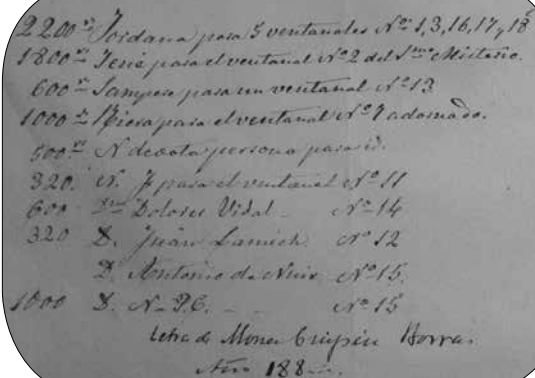 2200 rs Jordana para 5 ventanales Nos 1, 3, 16, 17, y 18
1800 rs Jené para el ventanal No 2 del Smo Misterio.
600 rs Sampere para un ventanal No 13
1000 rs Riera para el ventanal No 7 adornado.
500 rs N devota persona para id.
320. N. para el ventanal No 11
600 Dolores Vidal - No 14
320 D. Juan Lamich. No 12
D. Antonio de Nuix No 15.
1000 D. N. P.C. - - No 15
Letra de Mosen Crispín Borras.
Año 188